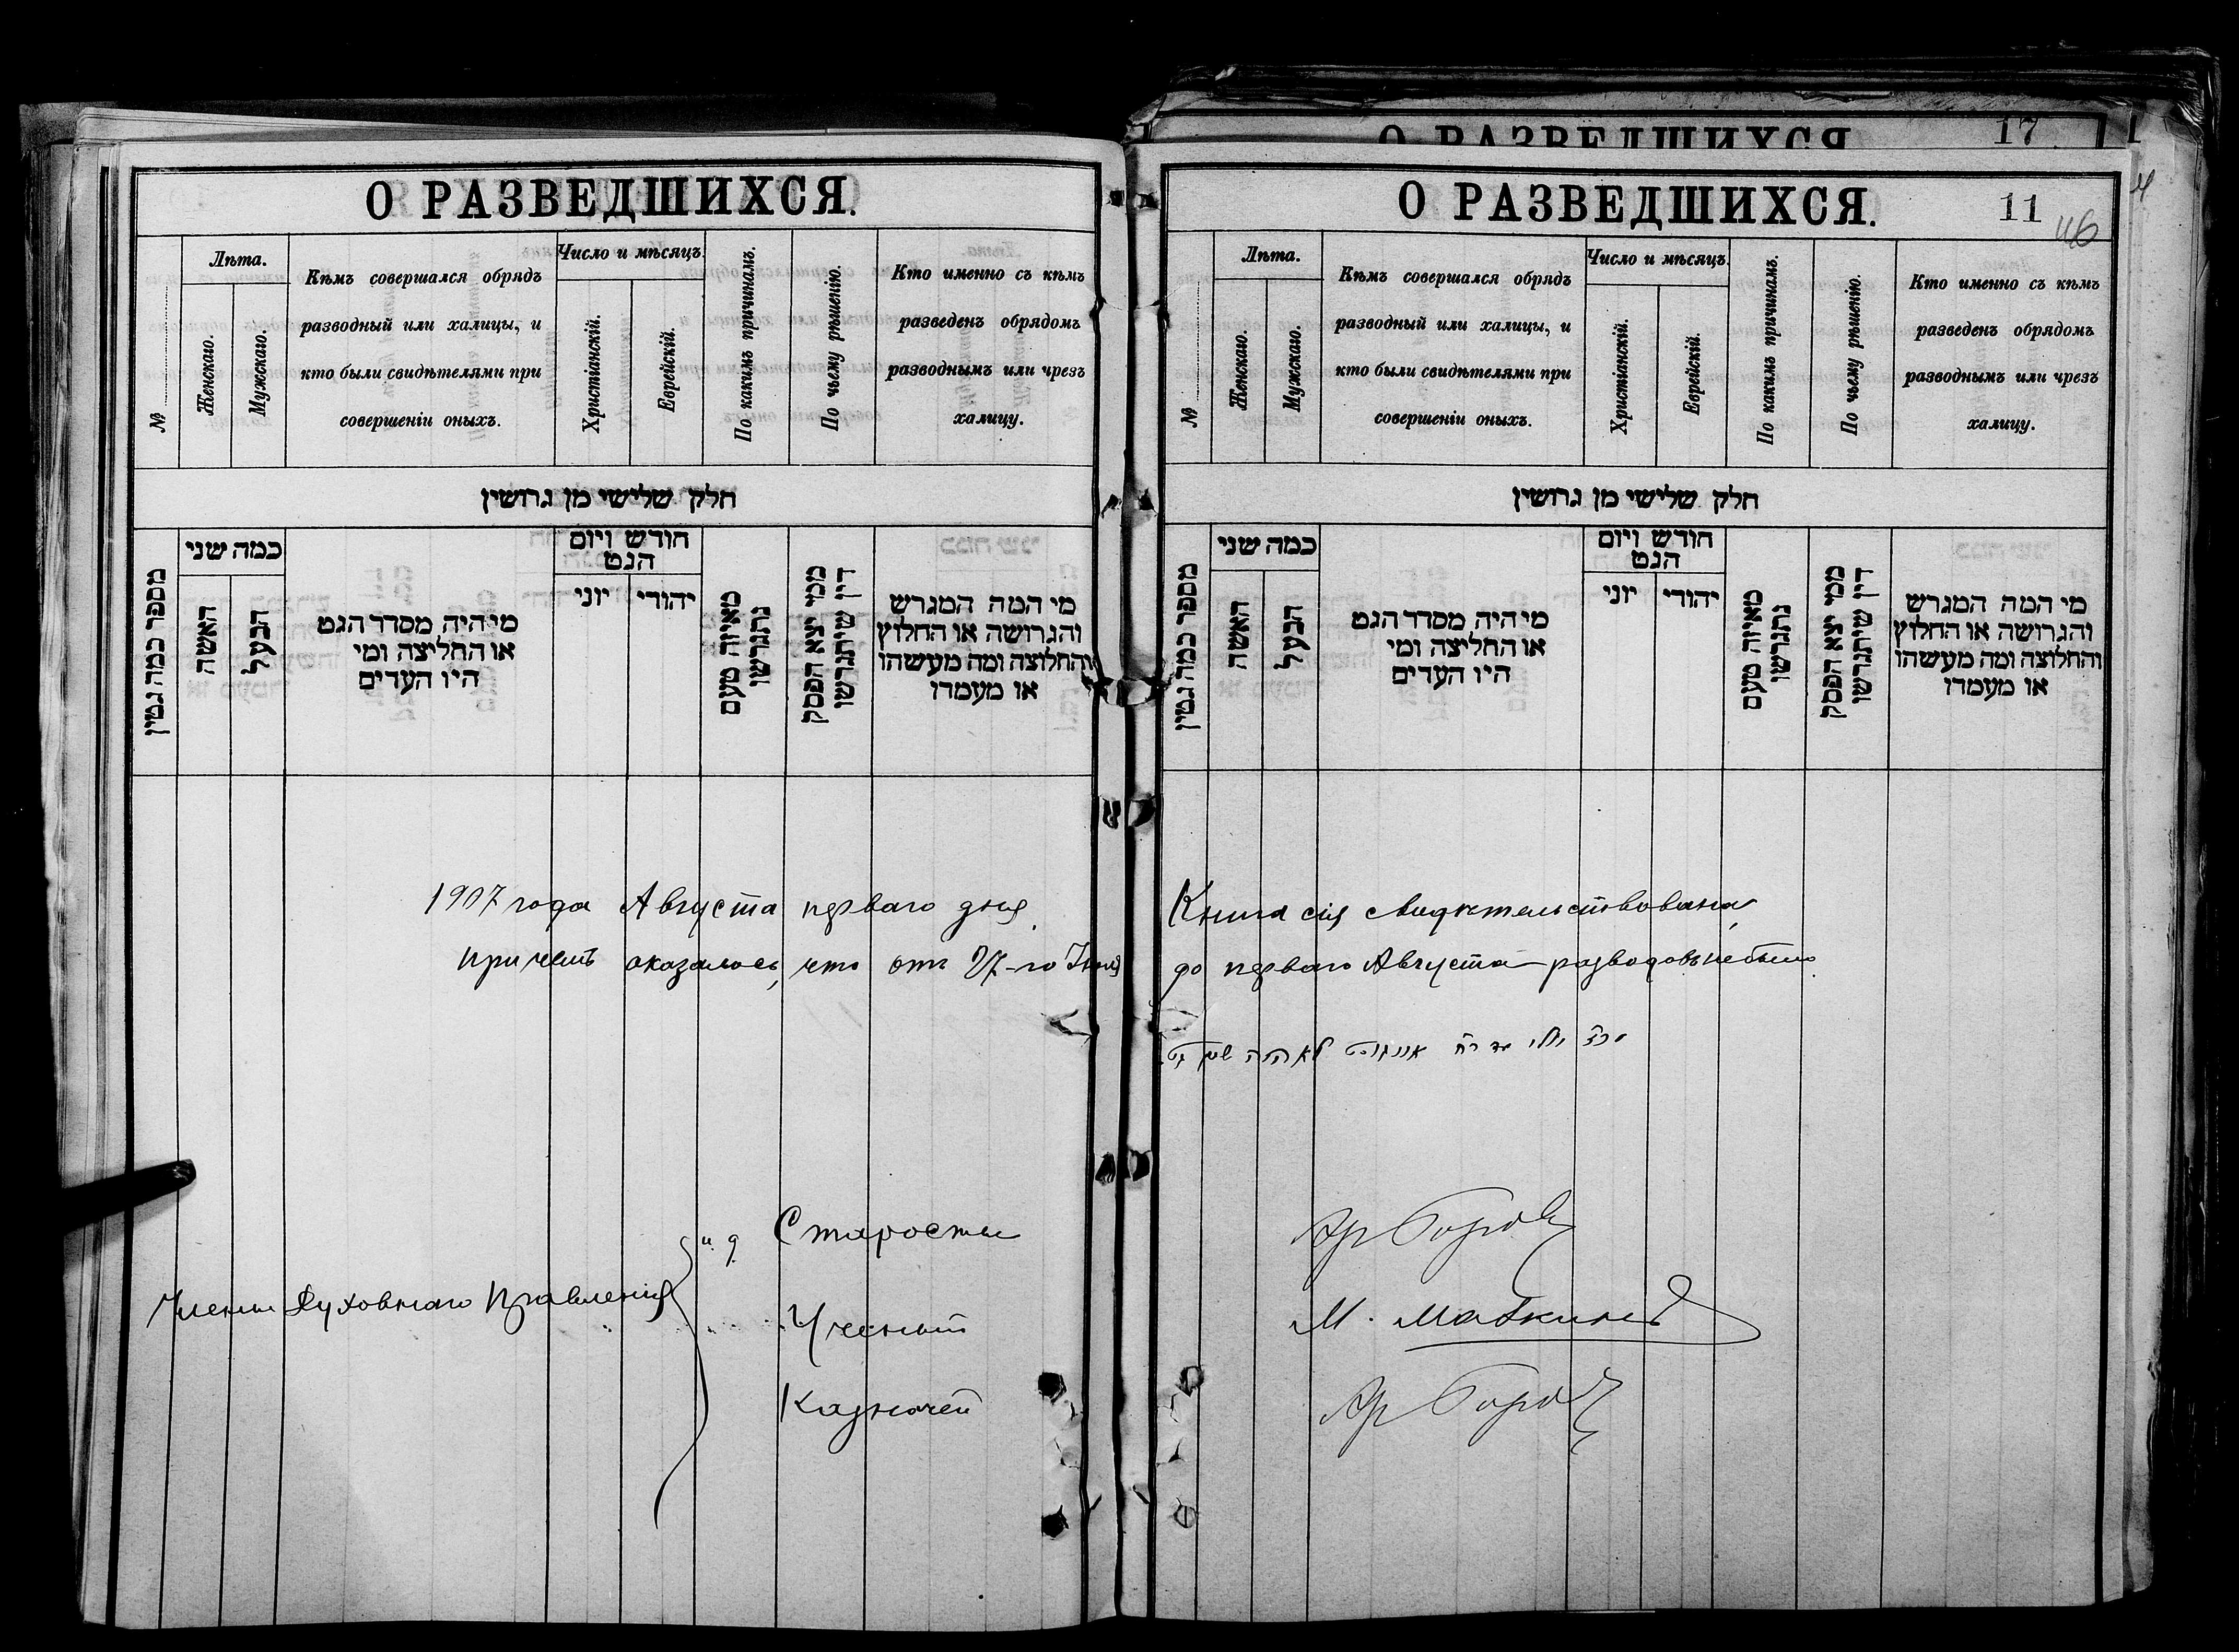 О РАЗВЕДШИХСЯ.
№
Лѣта.
Женскаго.
Мужскаго.
Кѣмъ совершался обрядъ
разводный или халицы, и
кто были свидѣтелями при
совершеніи оныхъ.
Число и мѣсяцъ.
Христіанскій.
Еврейскій.
По какимъ причинамъ.
По чьему рѣшенію.
Кто именно съ кѣмъ
разведенъ обрядомъ
разводнымъ или чрезъ
халицу.
חלק שלישי מן גרושין
מספר כמה גטין
כמה שני
האשה
הבעל
מי היה מסדר הגט
או החליצה ומי
היו העדים
חודש ויום
הגט
יוני
יהודי
מאיזה טעם
נתגרשו
ממי יצא הפסק
דין שיתגרשו
מי המה המגרש
והגרושה או החלוץ
והחלוצה ומה מעשהו
או מעמדו
1907 года Августа перваго дня
при чемъ оказалось, что отъ
Члены Духовнаго Правленія
и. д. Старосты
Ученый
Казначей
О РАЗВЕДШИХСЯ
17
О РАЗВЕДШИХСЯ.
11
46
№
Лѣта.
Женскаго.
Мужскаго.
Кѣмъ совершался обрядъ
разводный или халицы, и
кто были свидѣтелями при
совершеніи оныхъ.
Число и мѣсяцъ.
Христіанскій.
Еврейскій.
По какимъ причинамъ.
По чьему рѣшенію.
Кто именно съ кѣмъ
разведенъ обрядомъ
разводнымъ или чрезъ
халицу.
חלק שלישי מן גרושין
מספר כמה גטין
כמה שני
האשה
הבעל
מי היה מסדר הגט
או החליצה ומי
היו העדים
חודש ויום
הגט
יוני
יהודי
מאיזה טעם
נתגרשו
ממי יצא הפסק
דין שיתגרשו
מי המה המגרש
והגרושה או החלוץ
והחלוצה ומה מעשהו
או מעמדו
Книга сія свидѣтельствована,
до перваго Августа разводовъ не было.
אויגוסט לא היה שום גט
М.